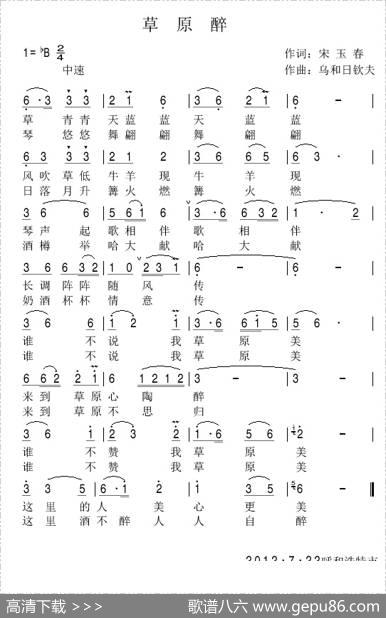 草 原 醉
1=♭B 2/4
作词：宋 玉 春
中速
作曲：乌和日钦夫
6·3 3 3 | 2 1 6 | 3 6 2 1 | 6 - |
草 青青 天 蓝 蓝
琴 悠悠 舞 翩 翩 翩
6·3 3 3 | 2 1 6 | 3 6 6 5 | 6 - |
风 吹 草 低 牛 羊 现 牛 羊 现
日 落 月 升 篝 火 燃 篝 火 燃
3 6 6 | 5 6 1 6 | 3·6 6 3 2 | 1· 2 |
琴 声 起 歌 相 伴 歌 相 伴
酒 樽 举 哈 大 献 哈 大 献
3·6 6 6 3 2 | 1 0 2 3 1 | 6 - | 6 - |
长 调 阵 阵 随 风 传
奶 酒 杯 杯 情 意 传
3 6 6 | 1 2 1 | 3·6 6 1 5 | 6 - |
谁 不 说 我 草 原 美
谁 不 说 我 草 原 美
6 6 2 2 1 | 6 1 2 1 2 | 3 - | 3 - |
来 到 草 原 心 陶 醉
来 到 草 原 不 思 归
3 6 1 | 2 3 2 | 1·6 5 6 | 2 - |
谁 不 赞 我 草 原 美
谁 不 赞 我 草 原 美
3 3 5 | 6·1 2 | 3 2 3 5 | 6 - |
这 里 的 人 美 心 更 美
这 里 酒 不 醉 人 人 自 醉
高清下载 >>>
歌谱八六 www.gepu86.com